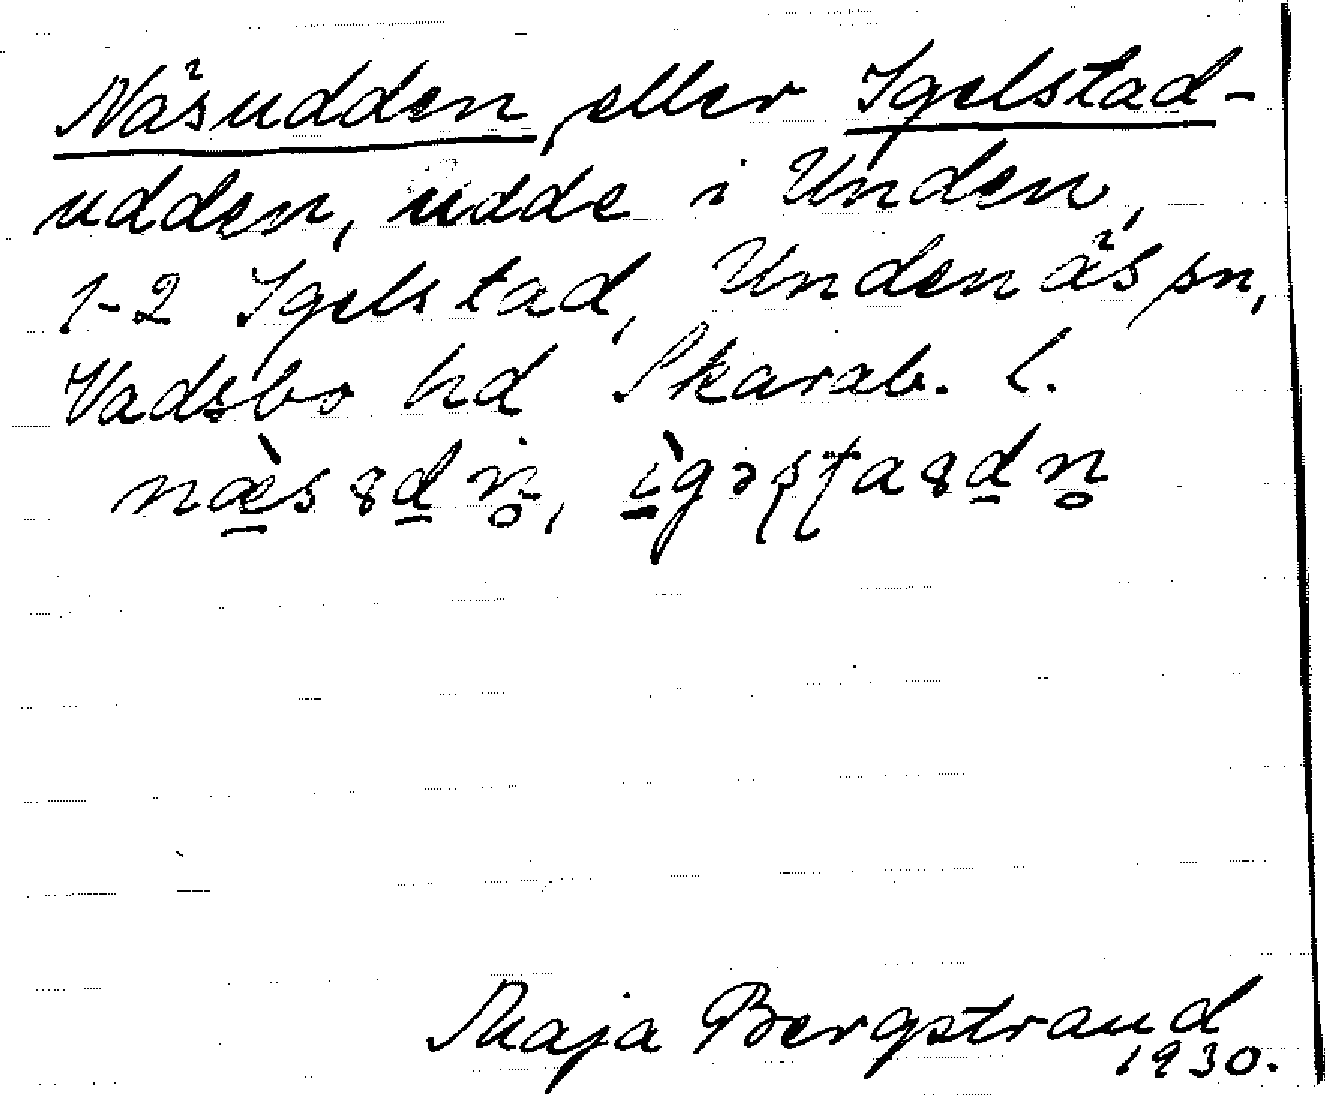 Näsudden eller Igelstad-
udden, udde i Unden,
1-2 Igelstad, Undenäs sn,
Vadsbo hd Skarab. l.
næ̀s8dn̥, ìgəʂʈa8dn̥
Maja Bergstrand
1930.